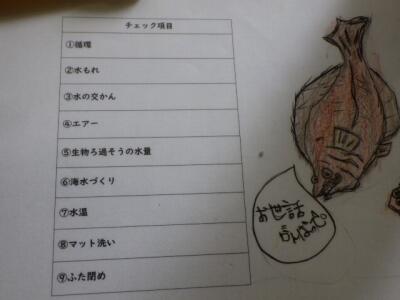 チェック項目
①循環
②水もれ
③水の交かん
④エアー
⑤生物ろ過そうの水量
⑥海水づくり
⑦水温
⑧マット洗い
⑨ふた閉め
お世話